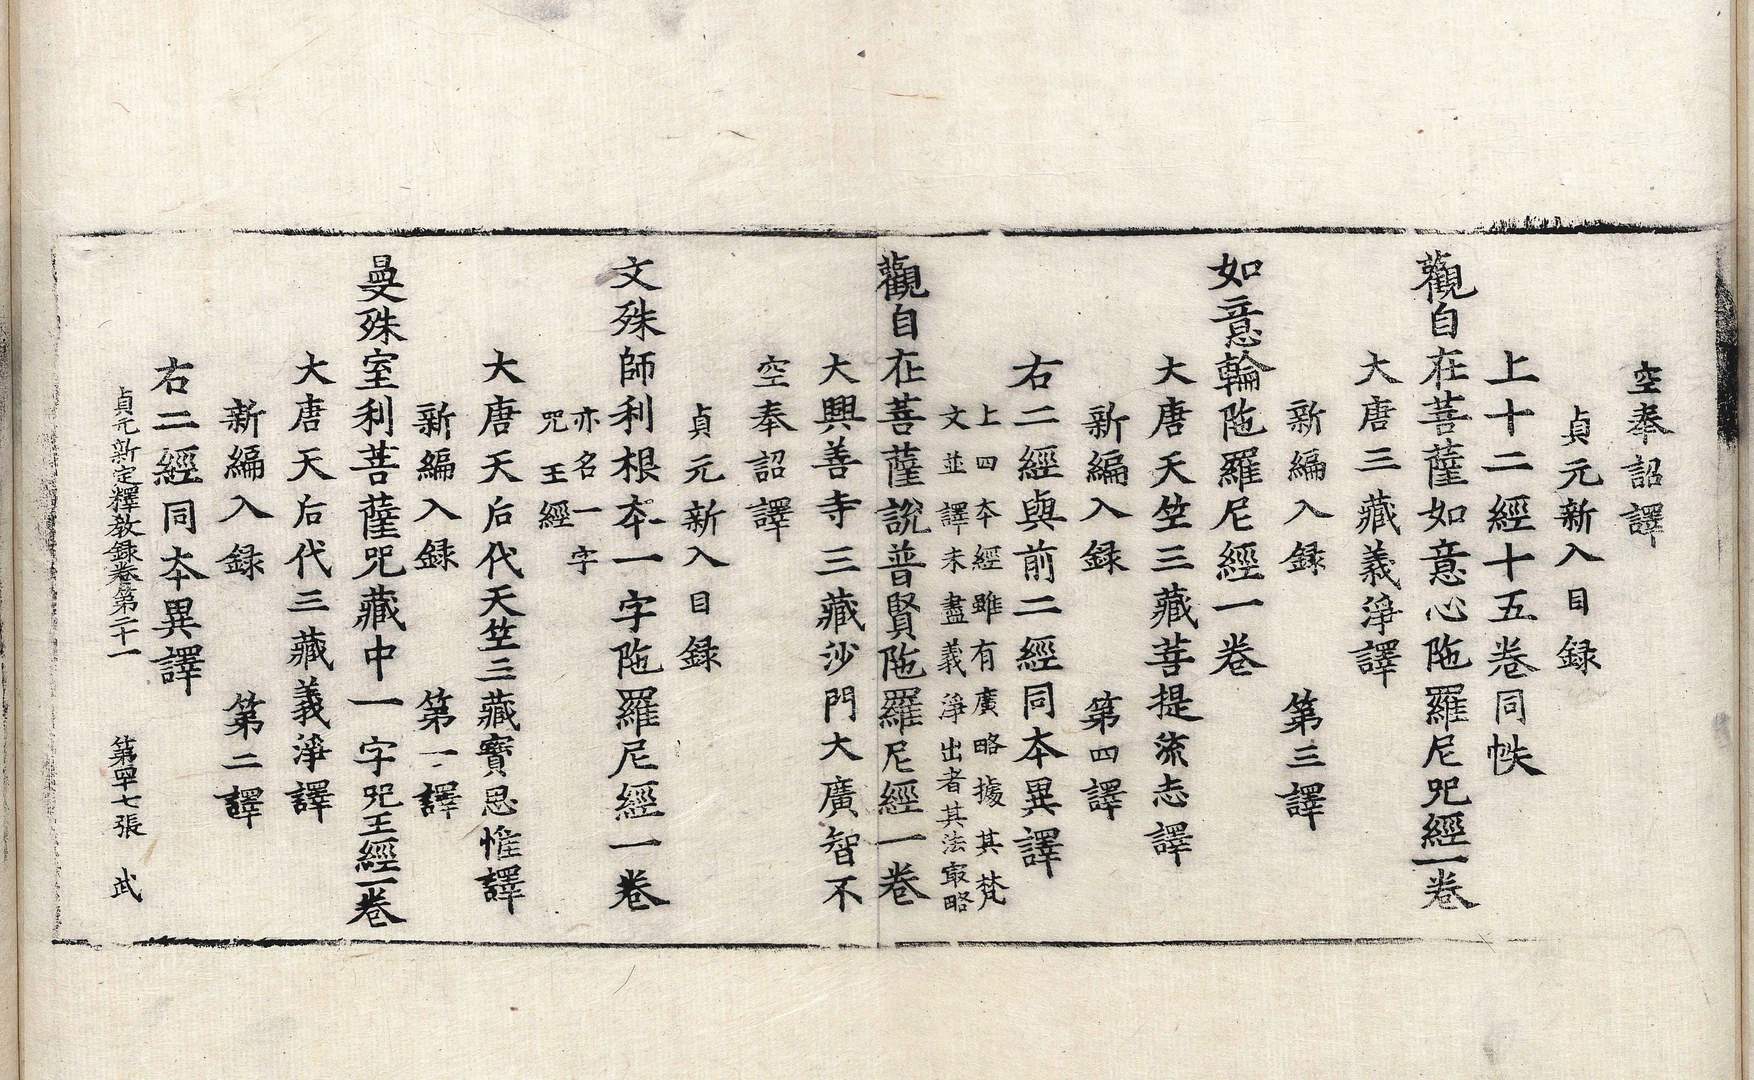 空奉詔譯
貞元新入目録
上十二經十五卷同帙
觀自在菩薩如意心陁羅尼呪經一卷
大唐三藏義淨譯
新編入録　第三譯
如意輪陁羅尼經一卷
大唐天竺三藏菩提流志譯
新編入録　第四譯
右二經與前二經同本異譯
上四本經雖有廣略據其梵
文並譯未盡義淨出者其法㝡略
觀自在菩薩說普賢陁羅尼經一卷
大興善寺三藏沙門大廣智不
空奉詔譯
貞元新入目録
文殊師利根本一字陁羅尼經一卷
亦名一字
呪王經
大唐天后代天竺三藏寶思惟譯
新編入録　第一譯
曼殊室利菩薩呪藏中一字呪王經一卷
大唐天后代三藏義淨譯
新編入録　第二譯
右二經同本異譯
貞元新定釋教録卷第二十一　第四十七張　武